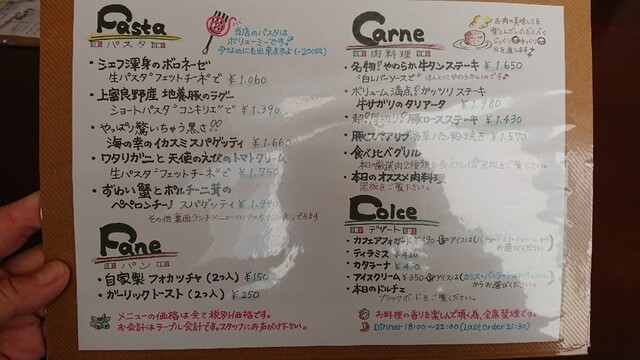 Pasta
パスタ
当店のパスタは
ボリューミーです。
少なめにも出来ますよ(-200円)
・シェフ渾身のボロネーゼ
生パスタ"フェットチーネ"で ¥1.060
・上富良野産 地養豚のラグー
ショートパスタ"コンキリエ"で ¥1.390
・やっぱり驚いちゃう黒さ!!
海の幸のイカスミスパゲッティ ¥1.660
・ワタリガニと天使のえびのトマトクリーム
生パスタ"フェットチーネ"で ¥1.750
・ずわい蟹とポルチーニ茸の
ペペロンチーノ スパゲッティ
その他裏面ランチメニューのパスタも
Pane
パン
・自家製 フォカッチャ (2つ入) ¥150
・ガーリックトースト (2つ入) ¥250
メニューの価格は全て税別価格です。
お会計はテーブル会計です。スタッフにお声がけ下さい。
Carne
肉料理
お肉の美味しさを
・名物!やわらか牛タンステーキ ¥1.650
"白レバーソースで" ほんとにやわらかいのです
・ボリューム満点!ガッツリステーキ
牛サガリのタリアータ ¥1.980
・超!厚切り!豚ロースステーキ ¥1.430
・豚スペアリブ 香草パン粉焼き ¥1.570
・食べ比べグリル
本日の厳選肉2種類を 黒板をご覧下さい。
・本日のオススメ肉料理
黒板をご覧下さい。
Dolce
デザート
・カフェアフォガート アイスは
・ティラミス
・カタラーナ
・アイスクリーム ¥350 アイスは
からお選びください。
・本日のドルチェ
ブラックボードをご覧ください。
お料理の香りを楽しんで頂く為、全席禁煙です。
Dinner 18:00〜22:00 (Last order 21:30)